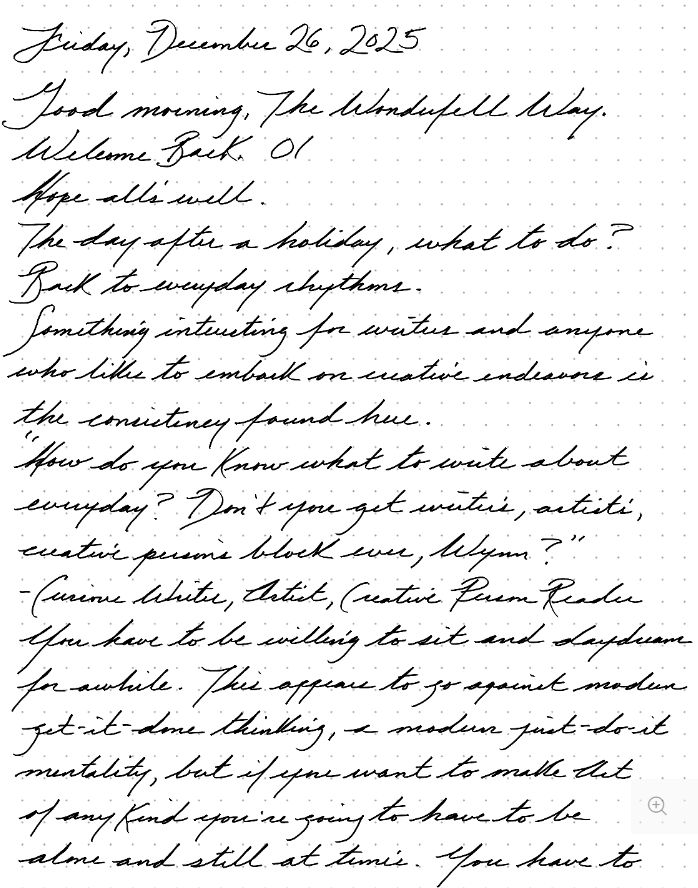 Friday, December 26, 2025
Good morning, The Wonderfell Way.
Welcome Back. 01
Hope all's well.
The day after a holiday, what to do?
Back to everyday rhythms.
Something interesting for writers and anyone
who likes to embark on creative endeavors is
the consistency found here.
"How do you know what to write about
everyday? Don't you get writer's, artist's,
creative person's block ever, Wynn?"
-Cursive Writer, Artist, Creative Person Reader
You have to be willing to sit and daydream
for awhile. This appears to go against modern
get-it-done thinking, a modern just-do-it
mentality, but if you want to make Art
of any Kind you're going to have to be
alone and still at times. You have to